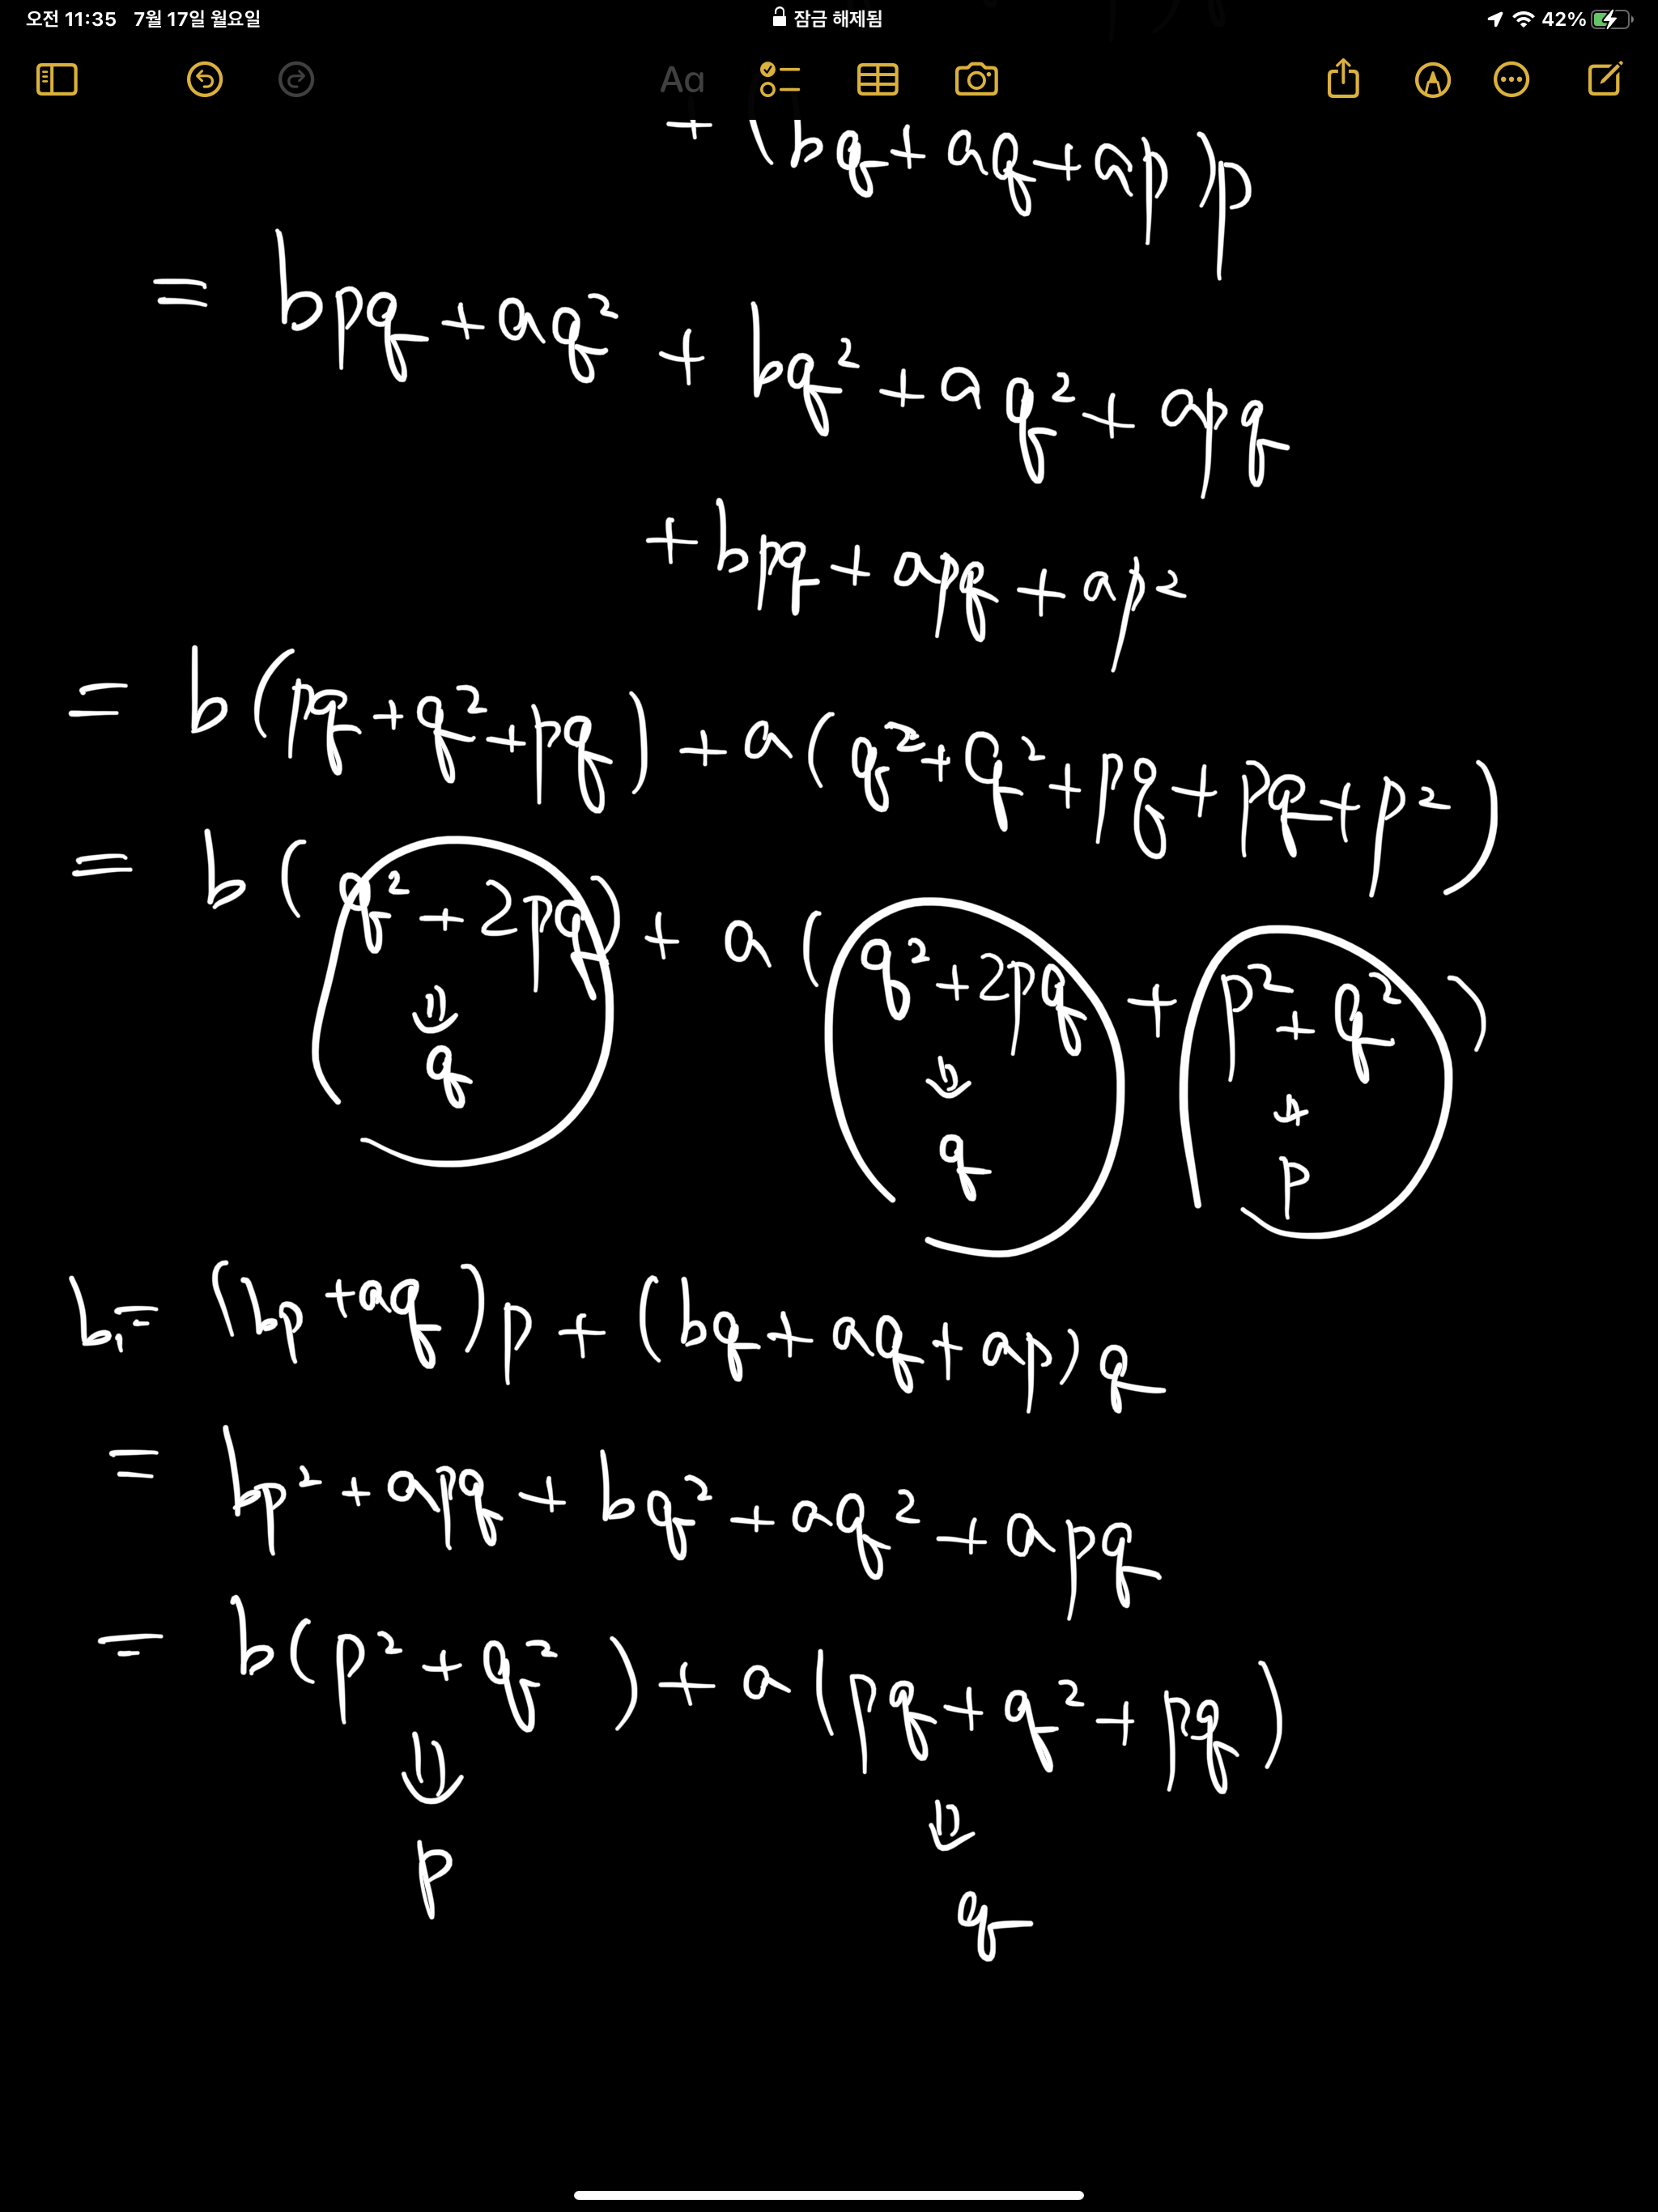 오전 11:35 7월 17일 월요일 잠금 해제됨 42%
Aa
+ (bq + aq + ap)p
= bpq + aq² + bq² + aq² + apq
+ bpq + apq + ap²
= b(pq + q² + pq) + a(q² + q² + pq + pq + p²)
= b(q² + 2pq) + a(q² + 2pq + p² + q²)
⇓ ⇓ ⇓
q q p
b₁ = (bp + aq)p + (bq + aq + ap)q
= bp² + apq + bq² + aq² + apq
= b(p² + q²) + a(pq + q² + pq)
⇓ ⇓
p q